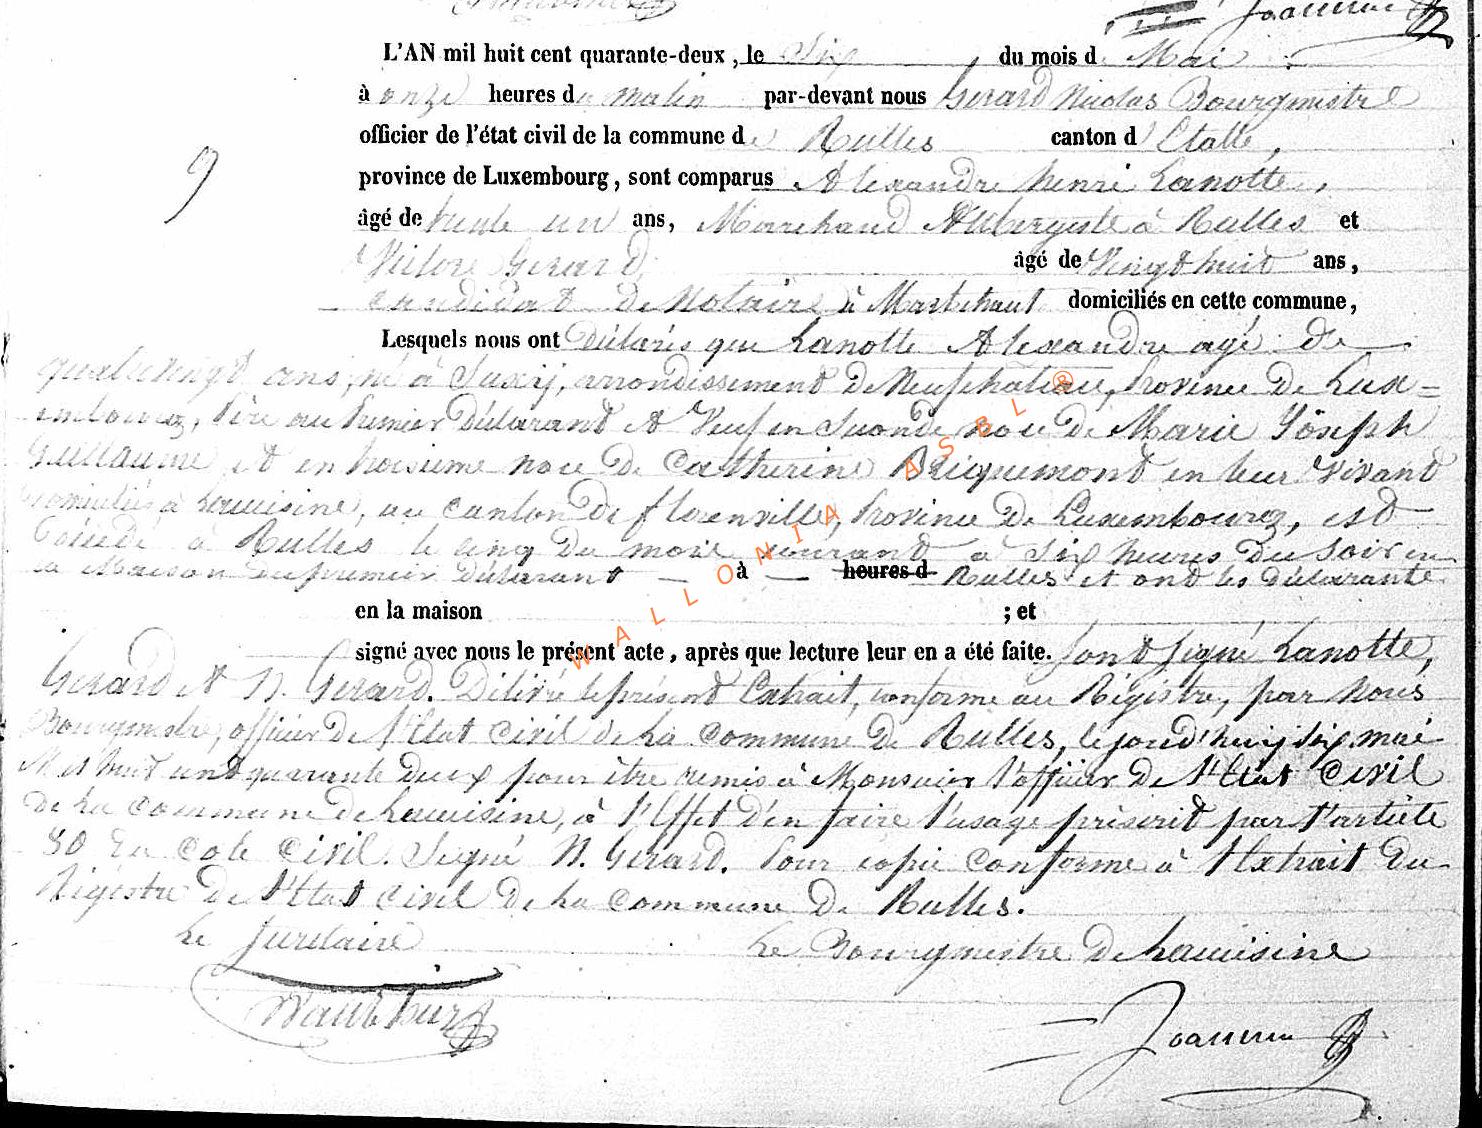 Joannin
L'AN mil huit cent quarante-deux, le Six du mois d Mai
à onze heures du matin par-devant nous Gerard Nicolas Bourgmestre
officier de l'état civil de la commune de Rulles canton d'Etalle,
province de Luxembourg, sont comparus Alexandre henri Lanotte,
9
âgé de trente un ans, Marchand Aubergiste à Rulles et
Victore Gerard âgé de Vingt huit ans,
candidat de Notaire à Martchaut domiciliés en cette commune,
Lesquels nous ont Déclarés que Lanotte Alexandre agé de
quatrevingt ans, né à Suxy, arrondissement de Neufchateau, Province de Lux=
embourg, Père au Premier Déclarant et Veuf en Seconde noce de Marie Joseph
Guillaume et en troisieme noce de Catherine Briquemont en leur Vivant
Domiciliés à Lacuisine, au canton de florenville, Province de Luxembourg, est
Décédé à Rulles le cinq du mois courant a Six heures du Soir en
la Maison du premier Déclarant — à — heures d Rulles et ont les déclarants
en la maison ; et
signé avec nous le présent acte, après que lecture leur en a été faite. Sont signé Lanotte,
Gerard et N. Gerard. Délivré le présent Extrait, conforme au Régistre, par Nous
Bourgmestre, officier de l'Etat Civil de la Commune de Rulles, le jourd'huy six mai
Mil huit cent quarante deux pour être remis à Monsieur l'officier de l'Etat Civil
de la Commune de Lacuisine, à l'Effet d'en faire l'usage préscrit par l'article
80 du Code Civil. Signé N. Gerard. Pour copie Conforme à l'Extrait du
Régistre de l'Etat Civil de la Commune de Rulles.
Le Secrétaire Le Bourgmestre de Lacuisine
Joannin
WALLONIA ASBL ®